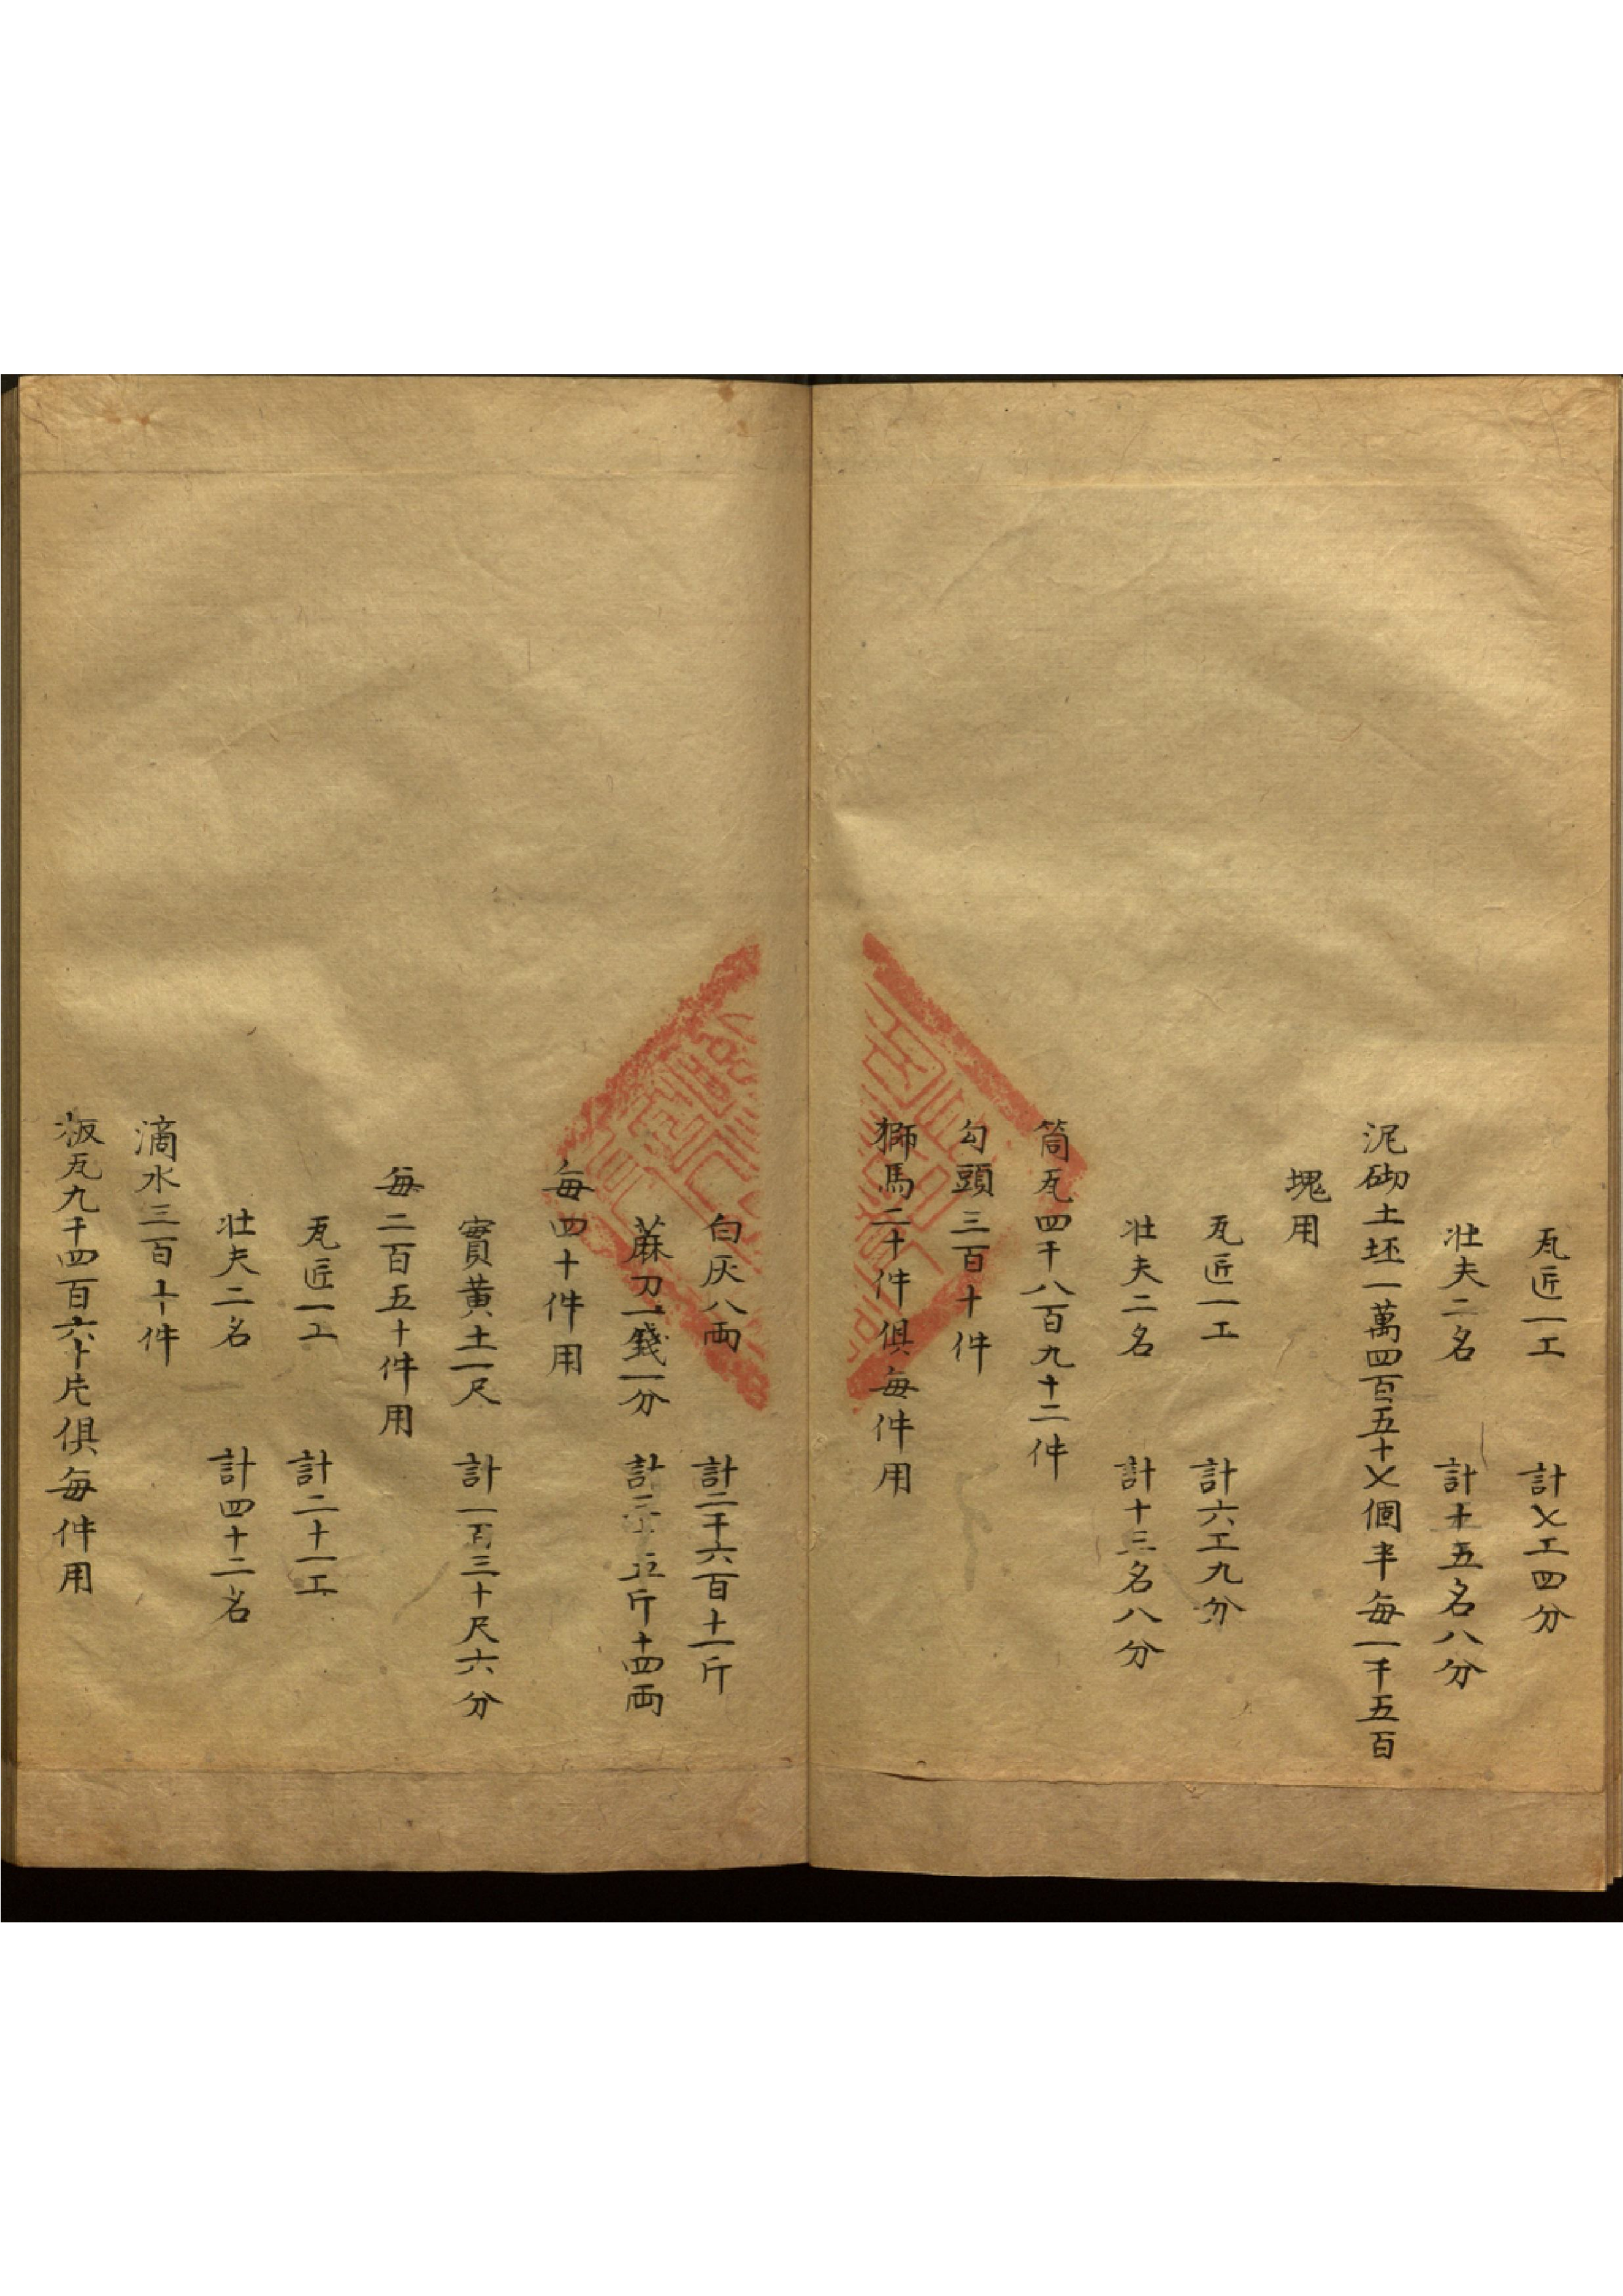 瓦匠一工　計七工四分
壮夫二名　計十五名八分
泥砌土坯一萬四百五十七個半每一千五百
塊用
瓦匠一工　計六工九分
壮夫二名　計十三名八分
筒瓦四千八百九十二件
勾頭三百十件
獅馬二十件俱每件用
白灰八両　計二千六百十一斤
蔴刀一錢一分　計三十五斤十四両
每四十件用
實黄土一尺　計一百三十尺六分
每二百五十件用
瓦匠一工　計二十一工
壮夫二名　計四十二名
滴水三百十件
板瓦九千四百六十片俱每件用